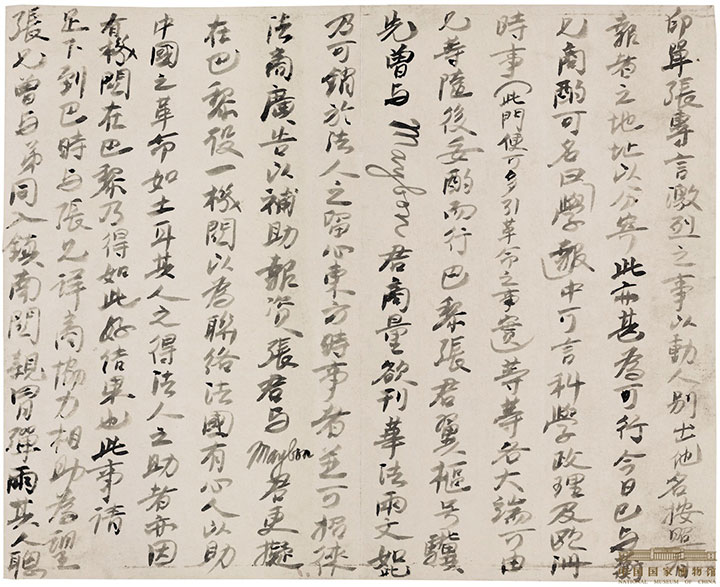 印單張專言激烈之事以動人別士他名按照
報者之地址以分寄此亦甚為可行今日已与
兄商酌可名曰學報中可言科學政理及歐洲
時事(此門便可多引革命之事實)等等各大端可由
兄等隨後妥酌而行巴黎張君翼樞号驥
先曾与 Maybon 君商量欲刊華法兩文報
乃可銷於法人之留心東方時事者並可招徠
法商廣告以補助報資張君与 Maybon 君更擬
在巴黎設一機関以為聯絡法國有心人以助
中國之革命如土耳其人之得法人之助者亦因
有機関在巴黎乃得如此好結果也此事請
足下到巴時与張兄詳商協力相助為望
張兄曾与弟同入鎮南関親冒彈雨其人聰
中国国家博物馆
NATIONAL MUSEUM OF CHINA